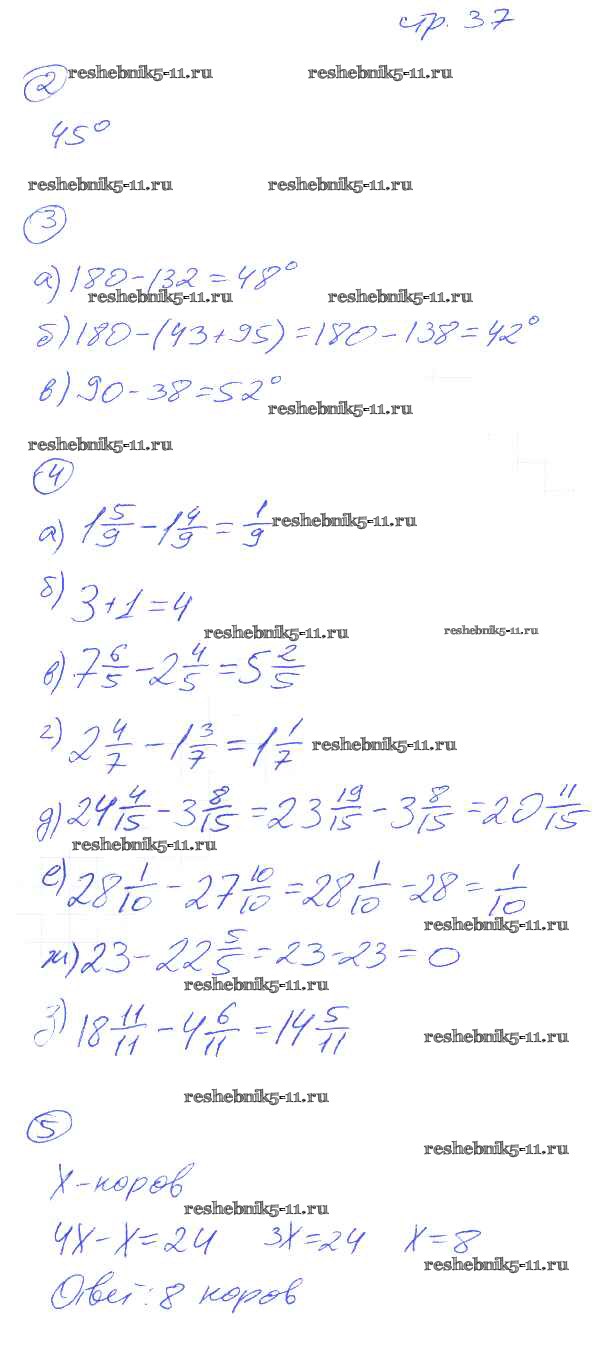 стр. 37
reshebnik5-11.ru reshebnik5-11.ru
2
45°
reshebnik5-11.ru reshebnik5-11.ru
3
а) 180-132=48°
reshebnik5-11.ru reshebnik5-11.ru
б) 180-(43+95)=180-138=42°
в) 90-38=52°
reshebnik5-11.ru
reshebnik5-11.ru
4
а) 1 5/9 - 1 4/9 = 1/9
reshebnik5-11.ru
б) 3+1=4
reshebnik5-11.ru reshebnik5-11.ru
в) 7 6/5 - 2 4/5 = 5 2/5
г) 2 4/7 - 1 3/7 = 1 1/7
reshebnik5-11.ru
д) 24 4/15 - 3 8/15 = 23 19/15 - 3 8/15 = 20 11/15
reshebnik5-11.ru
е) 28 1/10 - 27 10/10 = 28 1/10 - 28 = 1/10
reshebnik5-11.ru
ж) 23 - 22 5/5 = 23 - 23 = 0
reshebnik5-11.ru
з) 18 11/11 - 4 6/11 = 14 5/11
reshebnik5-11.ru
reshebnik5-11.ru
5
reshebnik5-11.ru
х-коров
reshebnik5-11.ru
4х-х=24 3х=24 х=8
reshebnik5-11.ru
Ответ: 8 коров